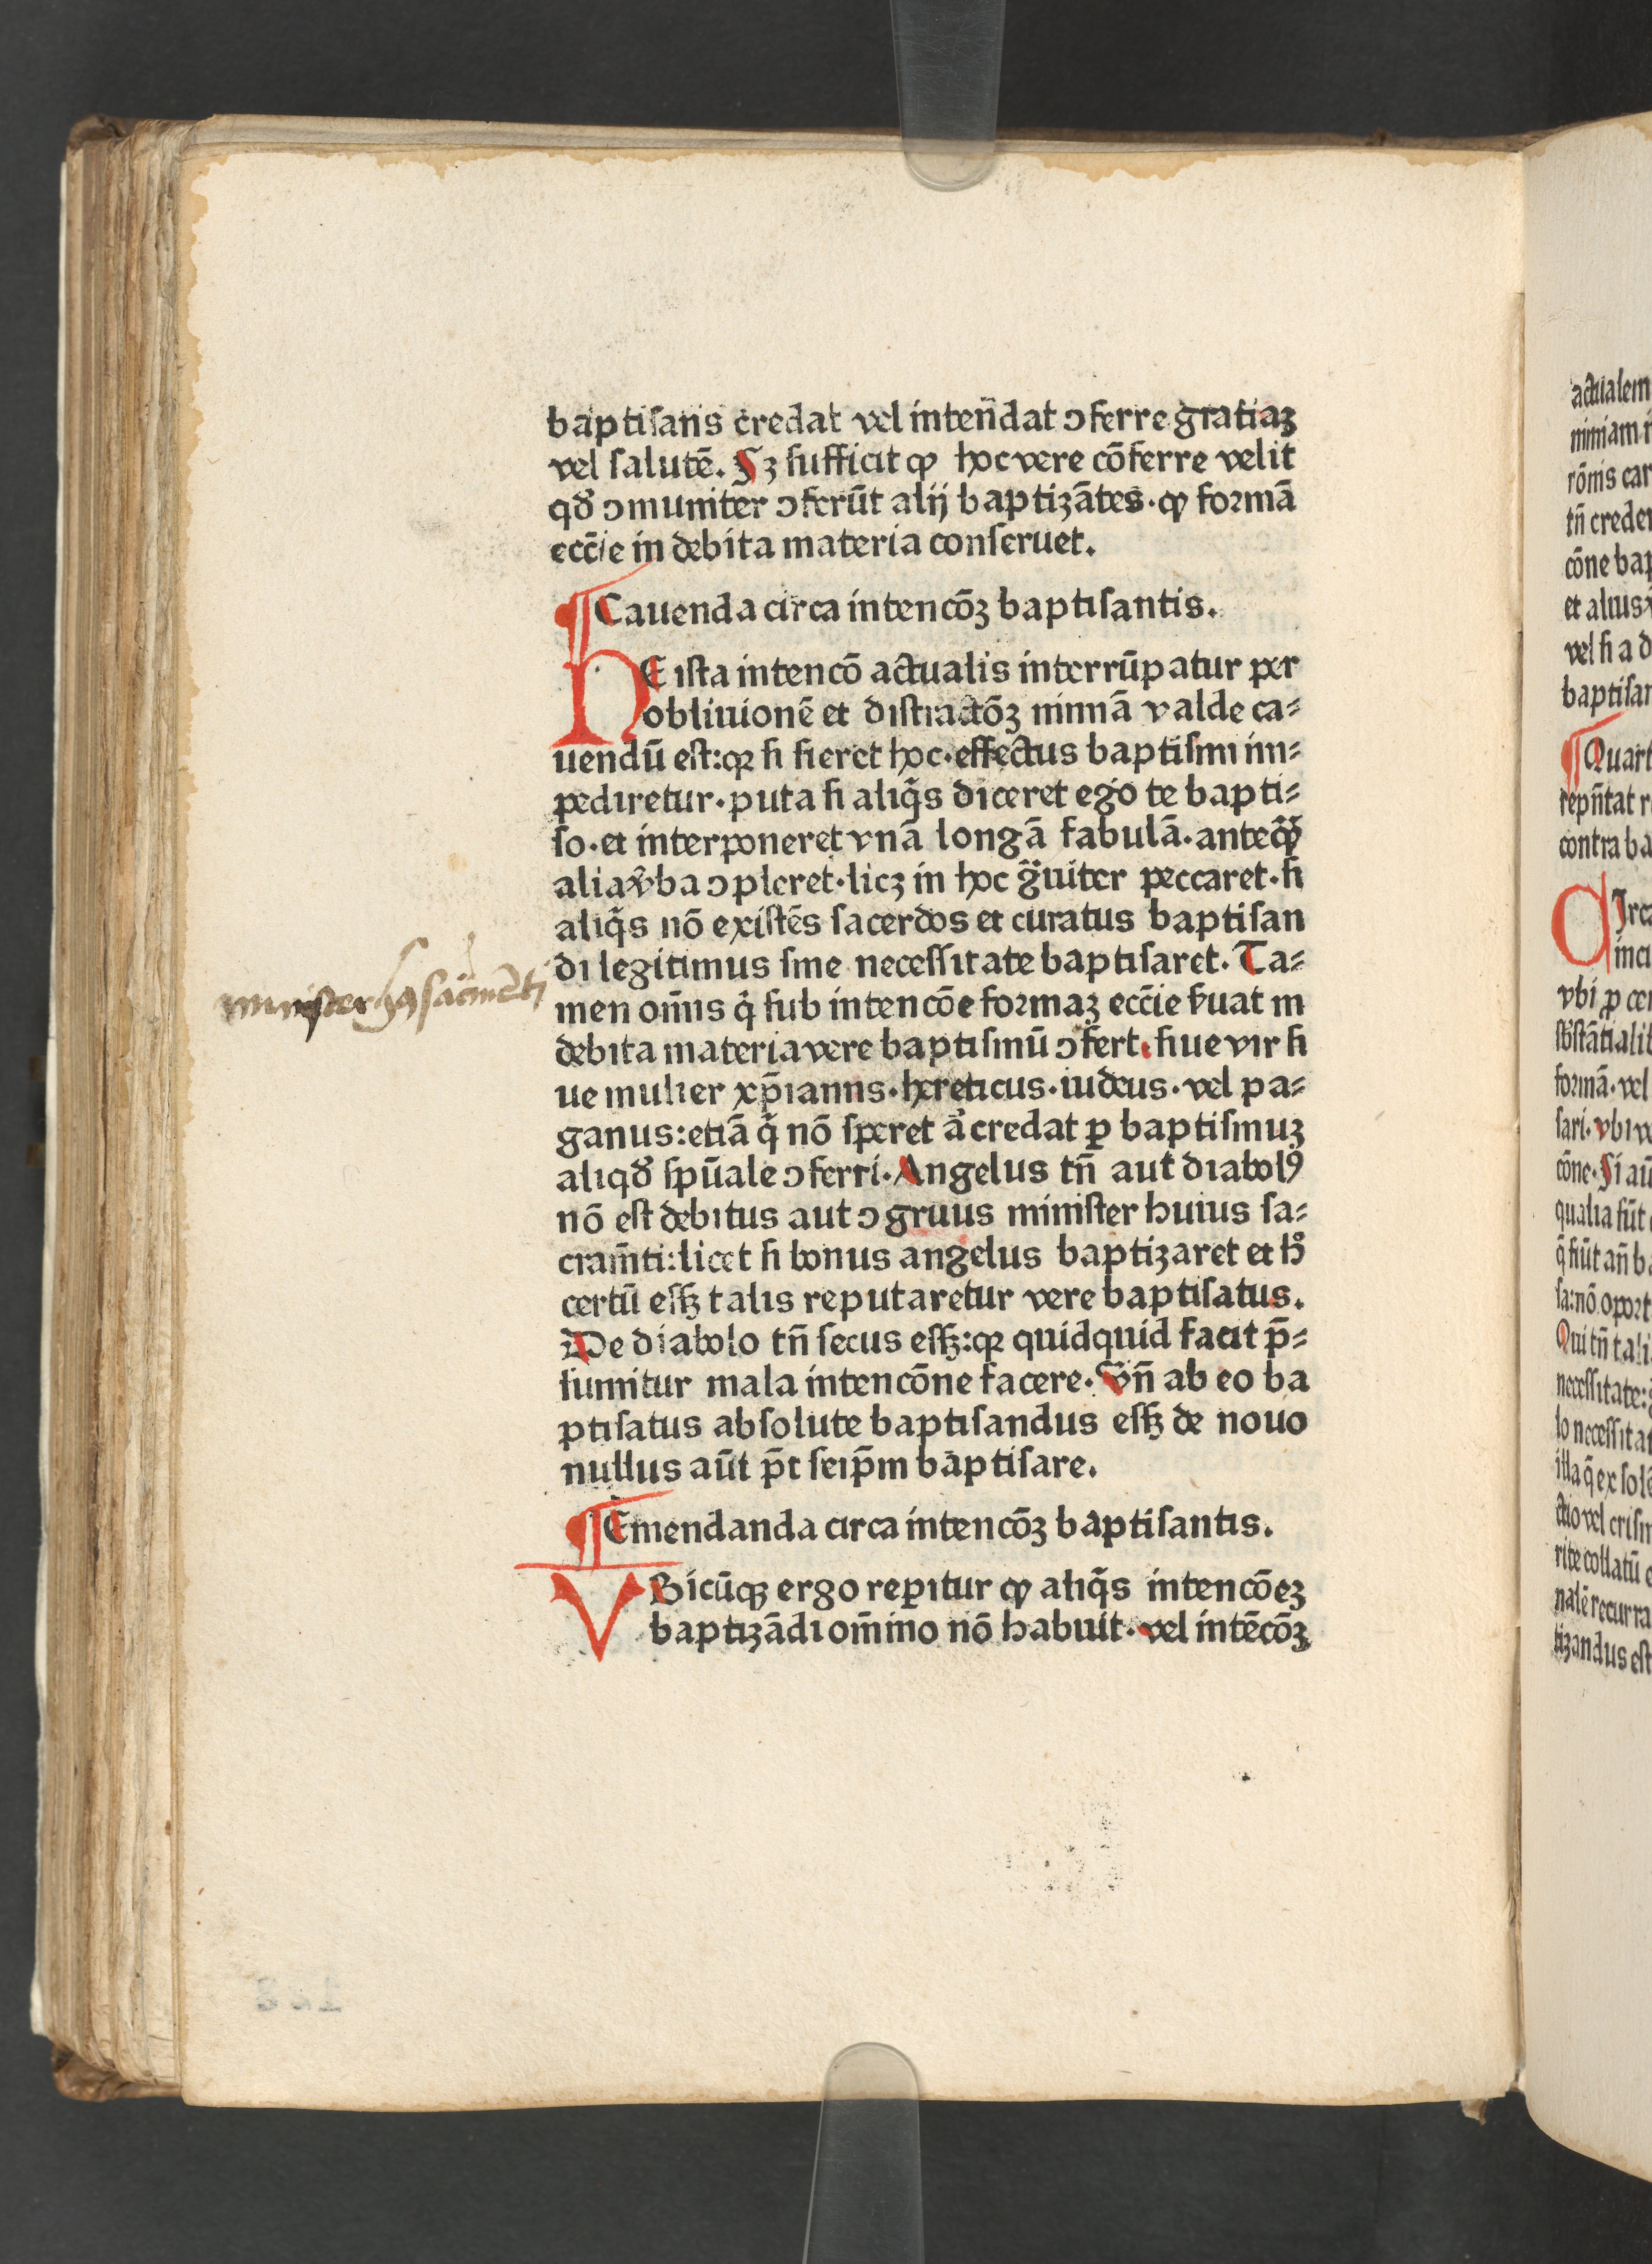 baptisans credat vel intendat ↄferre gratiaꝫ
vel salutē. Sꝫ sufficit ꝙ hoc vere cōferre velit
qď ↄmuniter ↄferūt alij baptizātes·ꝙ formā
ecc̄ie in debita materia conseruet.
¶Cauenda circa intencōꝫ baptisantis.
NE ista intencō actualis interrūpatur per
obliuionē et distractōꝫ nimiā valde ca⸗
uendū est:qꝛ si fieret hoc·effectus baptismi im⸗
pediretur·puta si aliq̄s diceret ego te bapti⸗
so·et interponeret vnā longā fabulā·anteꝙ̄
alia v̾ba ↄpleret·licꝫ in hoc g̈uiter peccaret·si
aliq̄s nō existēs sacerdos et curatus baptisan
di legitimus sine necessitate baptisaret. Ta⸗
minister hꝰ sacramēti
men om̄is q̇ sub intencōe formaꝫ ecc̄ie s̾uat in
debita materia vere baptismū ↄfert·siue vir si
ue mulier xp̄ianns·hereticus·iudeus·vel pa⸗
ganus:etiā q̇ nō speret a̾ credat ꝑ baptismuꝫ
aliqď sp̄uale ↄferri·Angelus tn̄ aut diabolꝰ
nō est debitus aut ↄgruus minister huius sa⸗
cram̄ti:licet si bonus angelus baptizaret et hͦ
certū essꝫ talis reputaretur vere baptisatus.
De diabolo tn̄ secus essꝫ:qꝛ quidquid facit p̄⸗
sumitur mala intencōne facere·Vn̄ ab eo ba
ptisatus absolute baptisandus essꝫ de nouo
nullus aūt p̄t seip̄m baptisare.
¶Emendanda circa intencōꝫ baptisantis.
VBicūqꝫ ergo reꝑitur ꝙ aliq̄s intencōeꝫ
baptizādi om̄ino nō habuit·vel intēcōꝫ
actualem
nimiam i
rōnis car
tn̄ creder
cōne bap
et alius
vel si a d
baptisar
¶Quart
repn̄tat r
contra ba
CIrca
inci
vbi ꝓ cer
sb̾stātialit
formā·vel
sari·vbi
cōne·Si aū
qualia sūt
q̄ fiūt an̄ b
sa:nō oport
Qui tn̄ tali
necessitate:
lo necessitat
illa q̄ ex sol
ctio vel crism
rite collatū
nalē recurra
tizandus est